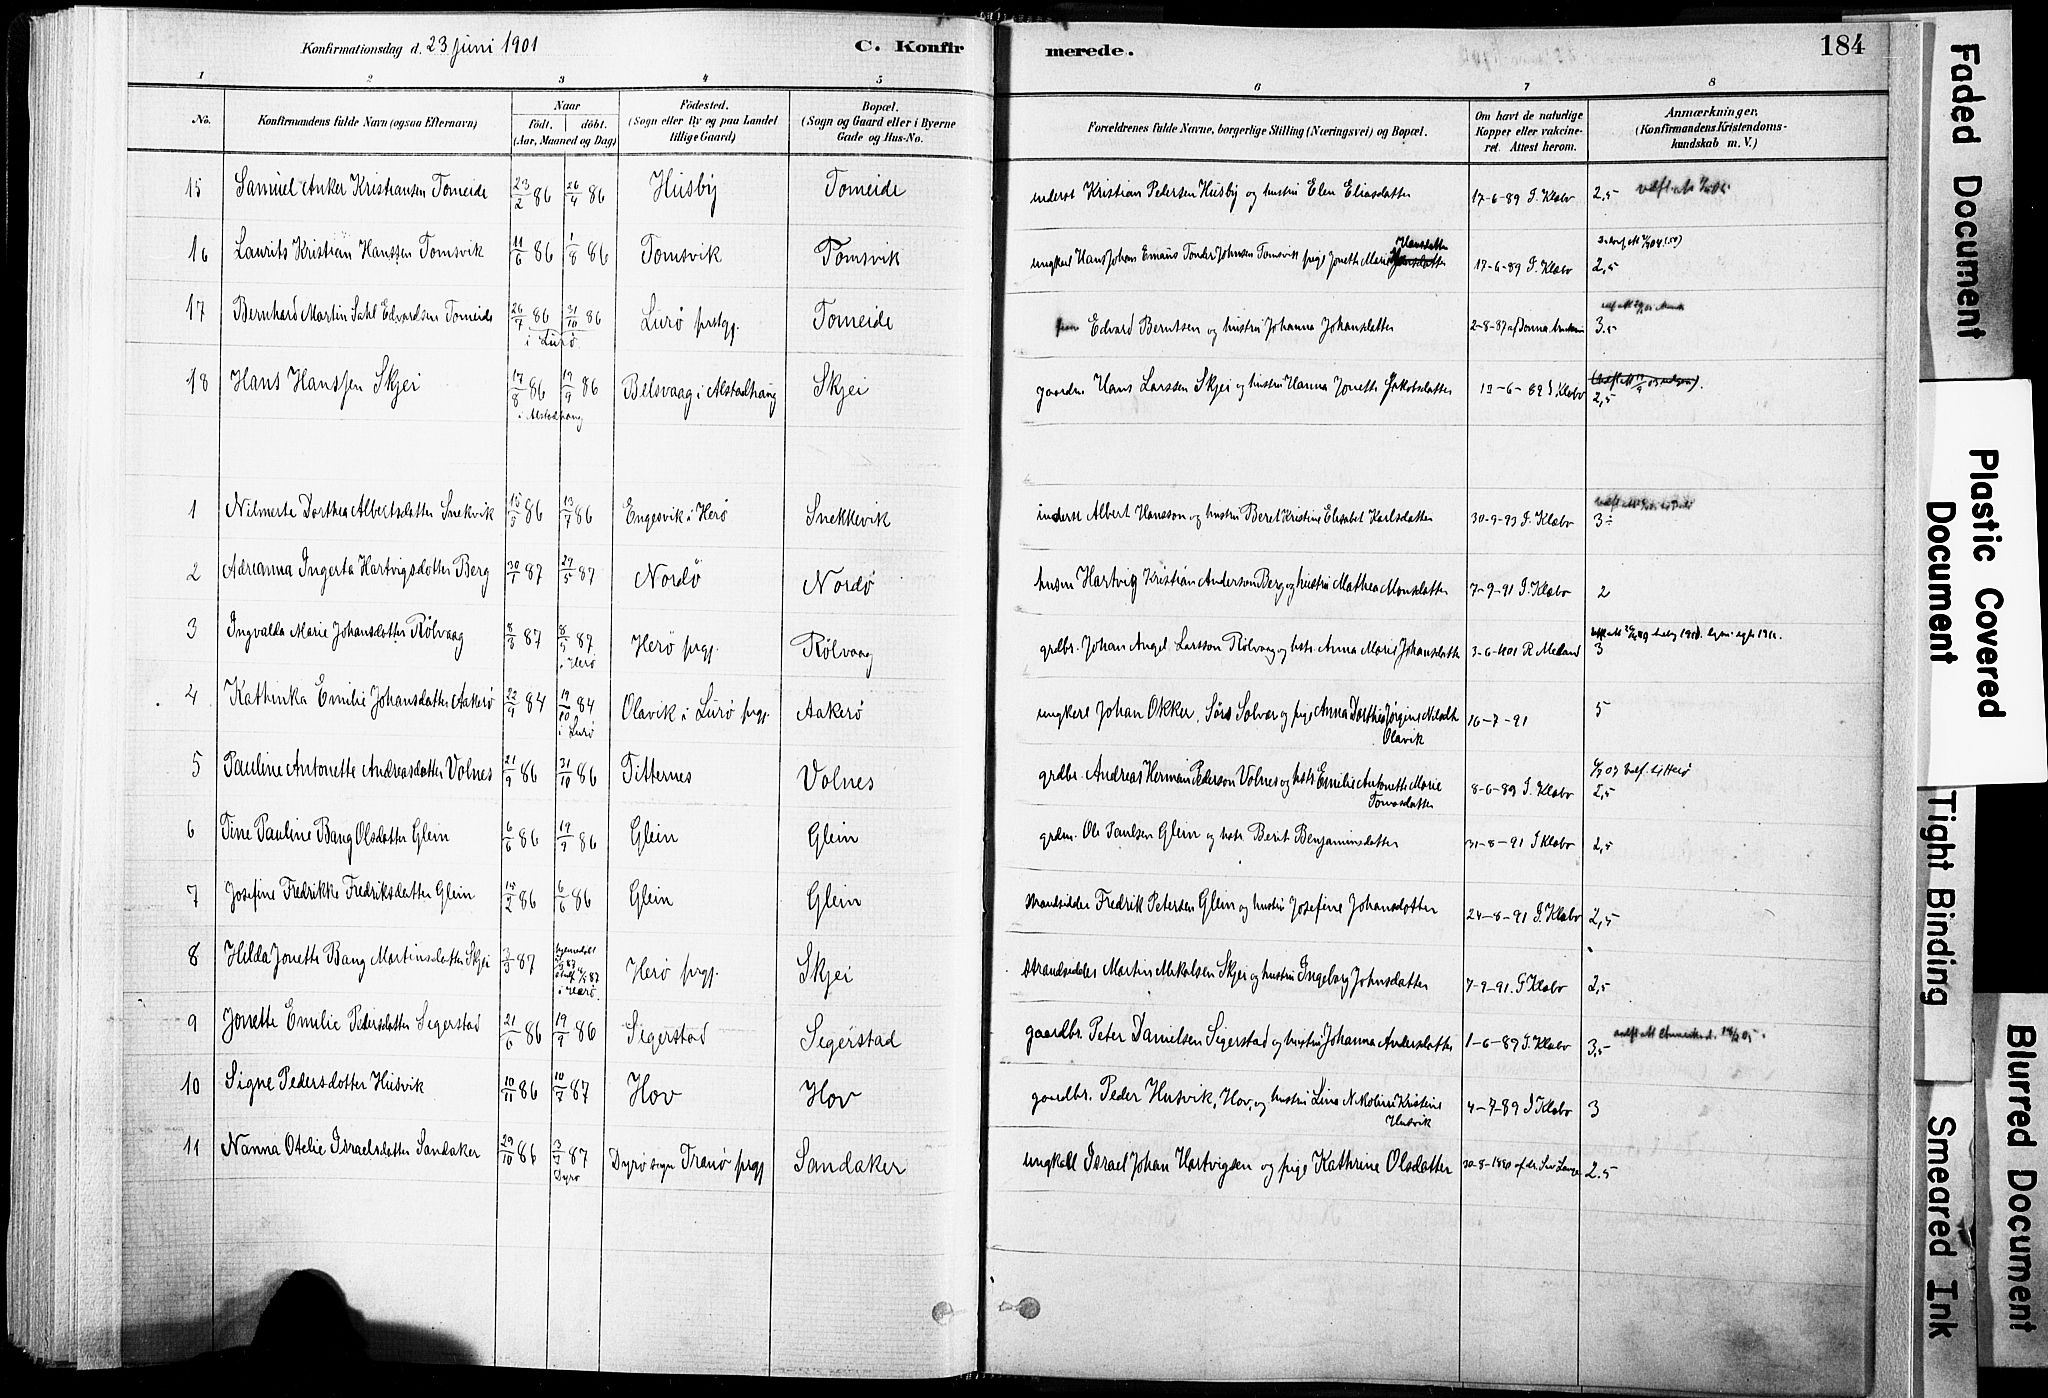 Konfirmationsdag d. 23 juni 1901
C. Konfirmerede.
184
1 2 3 4 5 6 7 8
No.
Konfirmandens fulde Navn (ogsaa Efternavn)
Naar
født. døbt.
(Aar, Maaned og Dag)
Fødested.
(Sogn eller By og paa Landet
tillige Gaard)
Bopæl.
(Sogn og Gaard eller i Byerne
Gade og Hus-No.
Forældrenes fulde Navne, borgerlige Stilling (Næringsvei) og Bopæl.
Om havt de naturlige
Kopper eller vakcine-
ret. Attest herom.
Anmærkninger.
(Konfirmandens Kristendoms-
kundskab m. V.)
15 Samuel Anker Kristiansen Tomeide 23/2 86 26/4 86 Husby Tomeide inderst Kristian Pedersen Husby og hustru Elen Eliasdatter 17-6-89 I. Klæbo 2,5
16 Laurits Kristian Hanssen Tomsvik 11/6 86 1/8 86 Tomsvik Tomsvik ungkarl Hans Johan Emaus Tonder Johnsen Tomsvik pige Jonetta Marie Hansdatter 17-6-89 I. Klæbo 2,5
17 Bernhard Martin Sahl Edvardsen Tomeide 26/7 86 31/10 86 i Lurø Lurø prstgj. Tomeide Edvard Berntsen og hustru Johanna Johansdatter 2-8-87 af 3.5
18 Hans Hanssen Skjei 17/8 86 19/9 86 i Alstadhaug Belsvaag i Alstadhaug Skjei gaardm. Hans Larssen Skjei og hustru Hanna Jonetta Jakobsdatter 12-6-89 I Klæbo 2,5
1 Nilmerte Dorthea Albertsdatter Snekvik 15/5 86 13/7 86 Engesvik i Herø Snekkevik inderst Albert Hansson og hustru Beret Kristine Elisabet Karlsdatter 30-9-93 I. Klæbo 3÷
2 Adreanna Ingerta Hartvigsdatter Berg 30/1 87 29/5 87 Nordø Nordø husm Hartvig Kristian Anderson Berg og hustru Mathea Monsdatter 7-9-91 I. Klæbo 2
3 Ingvalda Marie Johansdatter Rölvaag 8/3 87 8/5 87 i Herø Herø prgj. Rölvaag grdbr. Johan Angel Larsson Rölvaag og hstr. Anna Marie Johansdatter 3-6-401 R Meland 3
4 Kathinka Emilie Johansdatter Aakerø 22/9 84 19/10 84 i Lurø Olavik i Lurø prgj. Aakerø ungkarl Johan Okker, Sörs Solvær og pige Anna Dorthea Jørgine Nilsdtr Olavik 16-7-91 5
5 Pauline Antonette Andreasdatter Volnes 21/9 86 31/10 86 Titternes Volnes grdbr. Andreas Herman Pederson Volnes og hstr Emilie Antonette Marie Tomasdatter 8-6-89 I. Klæbo 2,5
6 Tine Pauline Bang Olsdatter Glein 6/6 86 19/9 86 Glein Glein grdm. Ole Paulsen Glein og hstr Berit Benjaminsdatter 31-8-91 I Klæbo 2,5
7 Josefine Fredrikke Fredriksdatter Glein 15/2 86 6/6 86 Glein Glein strandsidder Fredrik Petersen Glein og hustru Josefine Johansdatter 24-8-91 I. Klæbo 2,5
8 Hilda Jonette Bang Martinsdatter Skjei 2/3 87 hjemmedøbt 87 i Herø. Herø prgj. Skjei Strandsidder Martin Mikalsen Skjei og hustru Ingeborg Johnsdatter 7-9-91. I Klæbo 2,5
9 Jonette Emilie Pedersdatter Segerstad 21/6 86 19/9 86 Sigerstad Segerstad gaardbr. Peter Danielsen Sigerstad og hustru Johanna Andersdatter 1-6-89 I. Klæbo 3,5
10 Signe Pedersdatter Husvik 10/11 86 10/7 87 Hov Hov gaardbr. Peder Husvik, Hov, og hustru Lina Nikoline Kristine Husvik 4-7-89 I Klæbo 3
11 Nanna Otelie Israelsdatter Sandaker 29/10 86 3/7 87 Dyrø Dyrø sogn Tranø prgj Sandaker ungkall Israel Johan Hartvigsen og pige Kathrine Olsdatter 30-8-1880 af 2.5
Faded Document
Plastic Covered
Document
Tight Binding
Blurred Document
Smeared Ink